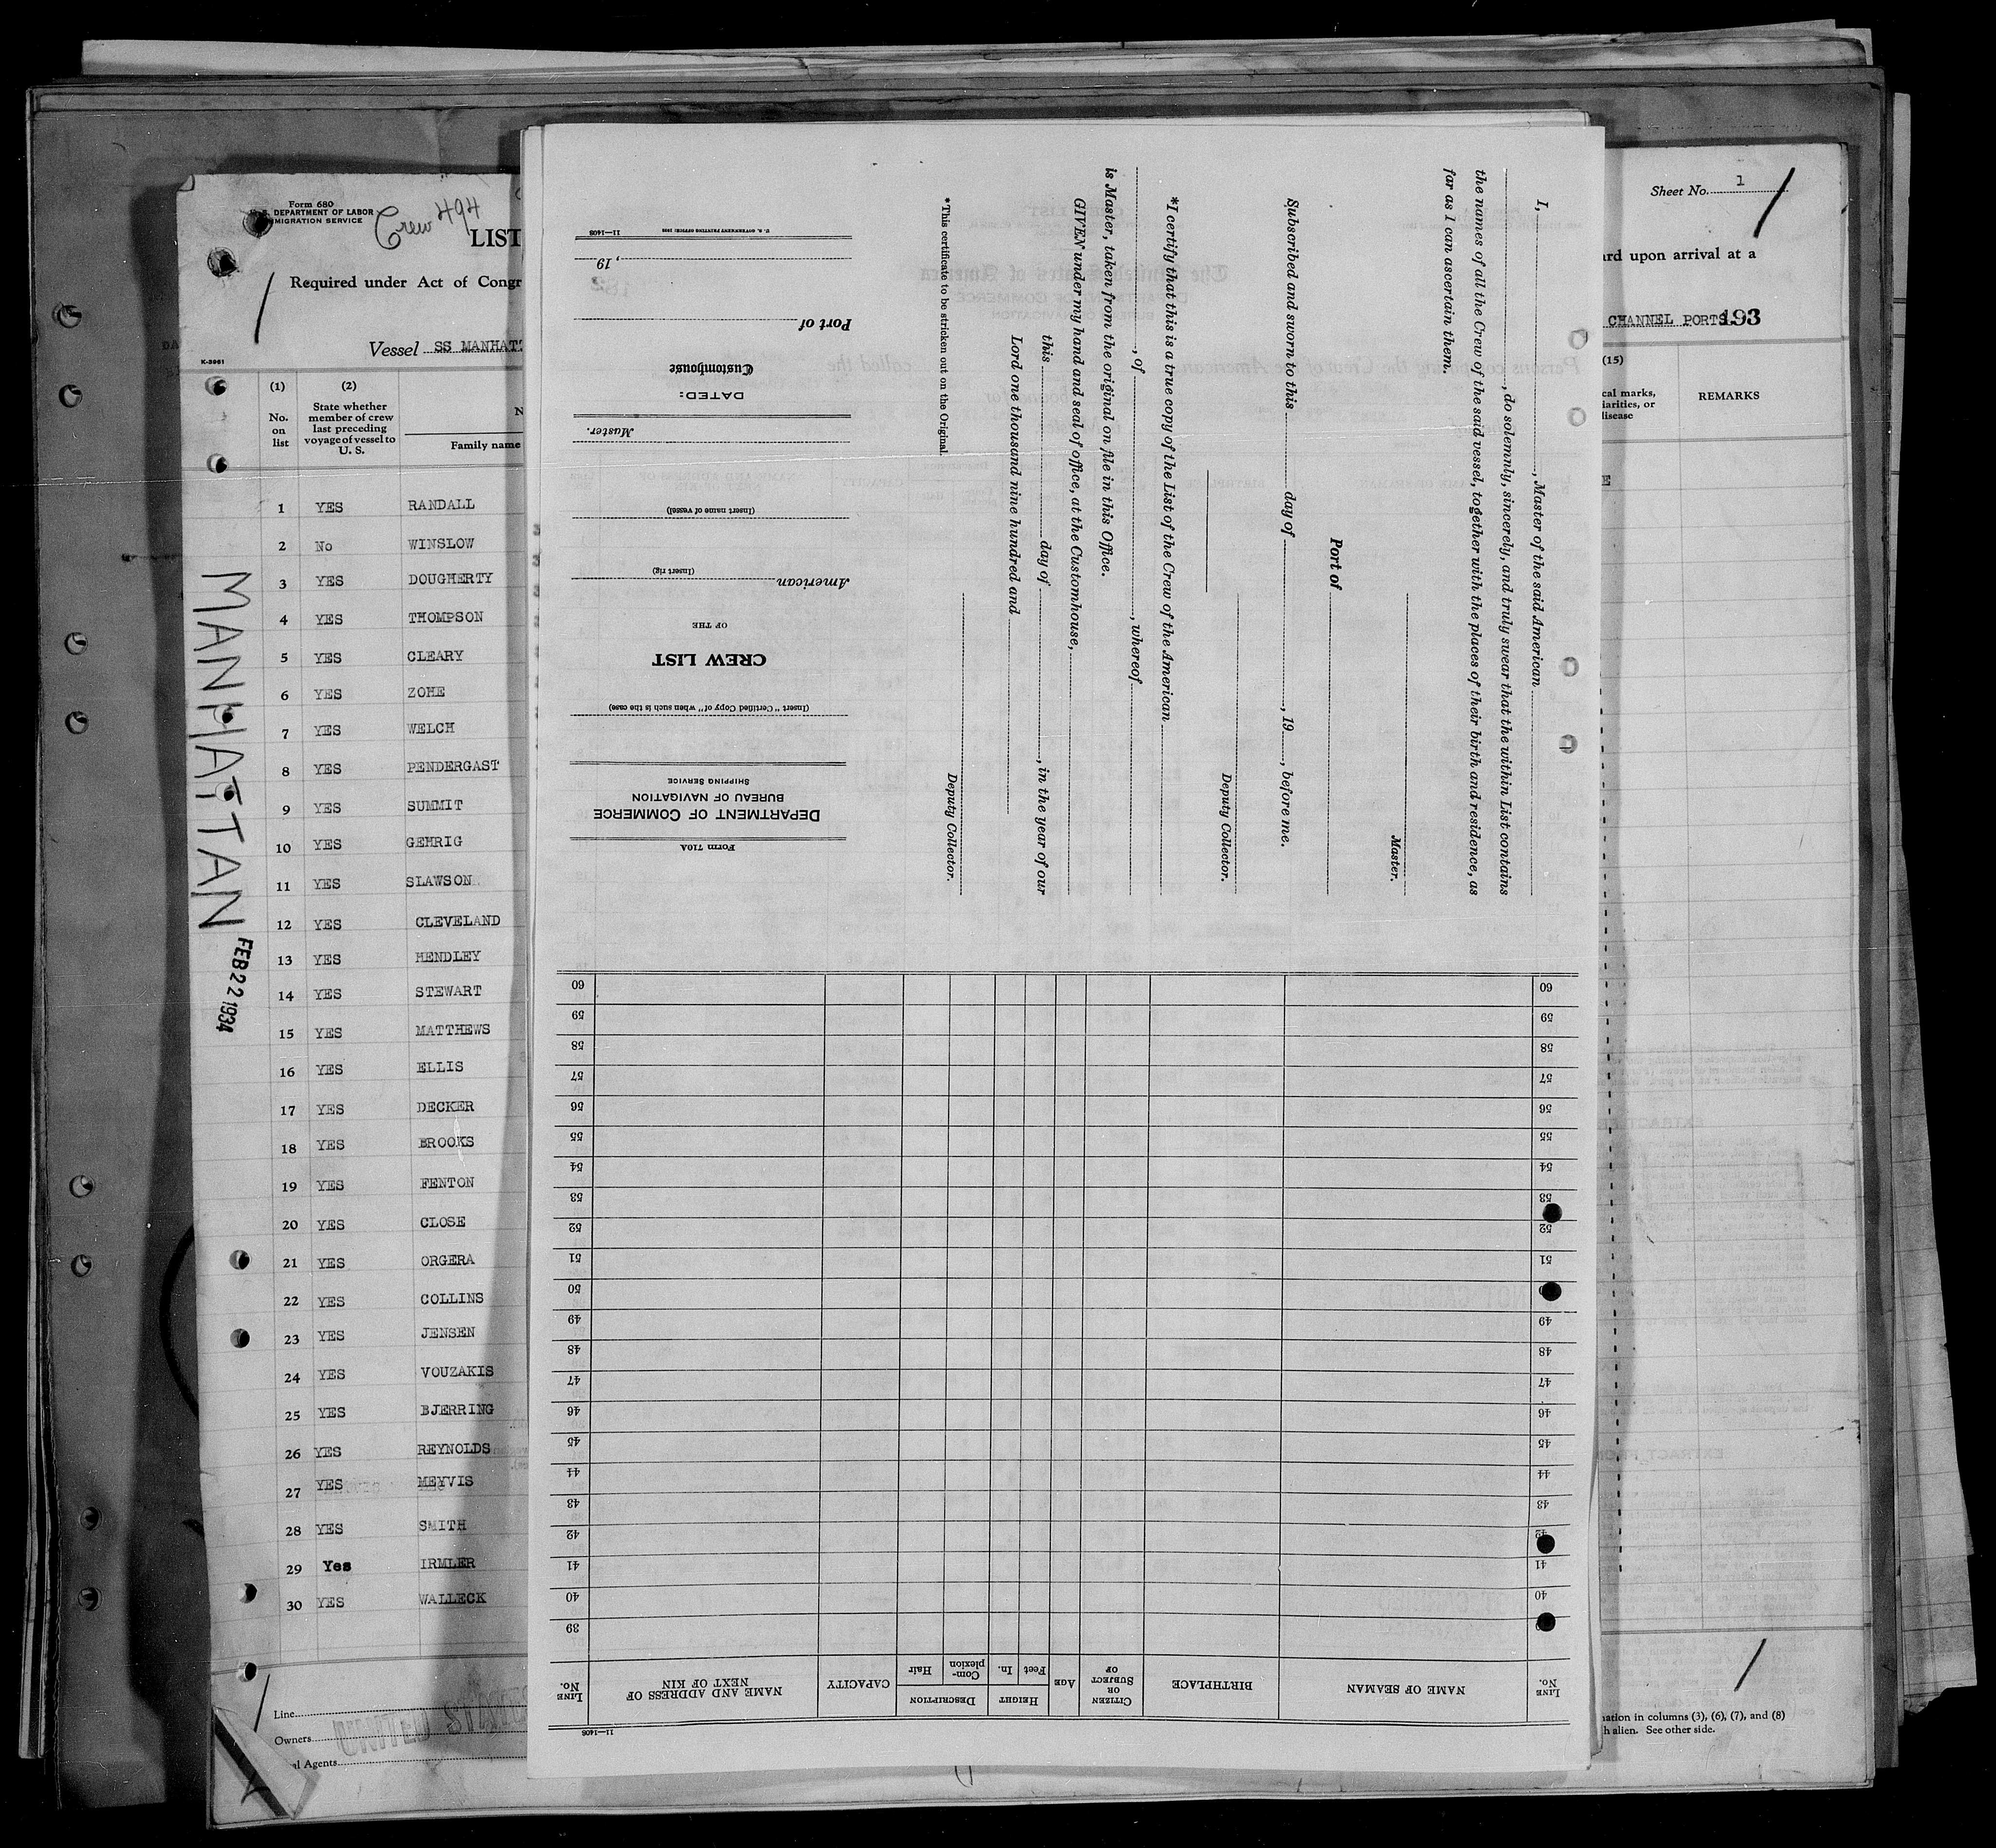 Form 680
DEPARTMENT OF LABOR
IMMIGRATION SERVICE
Crew 494
LIST
Required under Act of Congr
K-3961
Vessel SS MANHAT
(1) (2)
No. on list
State whether member of crew last preceding voyage of vessel to U. S.
Family name
1 YES RANDALL
2 No WINSLOW
3 YES DOUGHERTY
4 YES THOMPSON
5 YES CLEARY
6 YES ZOHE
7 YES WELCH
8 YES PENDERGAST
9 YES SUMMIT
10 YES GEHRIG
11 YES SLAWSON
12 YES CLEVELAND
13 YES HENDLEY
14 YES STEWART
15 YES MATTHEWS
16 YES ELLIS
17 YES DECKER
18 YES BROOKS
19 YES FENTON
20 YES CLOSE
21 YES ORGERA
22 YES COLLINS
23 YES JENSEN
24 YES VOUZAKIS
25 YES BJERRING
26 YES REYNOLDS
27 YES MEYVIS
28 YES SMITH
29 Yes IRMLER
30 YES WALLECK
MANHATTAN
FEB 22 1934
Line
Owners
al Agents
UNITED
I, , Master of the said American
, do solemnly, sincerely, and truly swear that the within List contains
the names of all the Crew of the said vessel, together with the places of their birth and residence, as
far as I can ascertain them.
Master.
Port of
Subscribed and sworn to this day of , 19 , before me.
Deputy Collector.
*I certify that this is a true copy of the List of the Crew of the American
, of , whereof
is Master, taken from the original on file in this Office.
GIVEN under my hand and seal of office, at the Customhouse,
this day of , in the year of our
Lord one thousand nine hundred and
Deputy Collector.
*This certificate to be stricken out on the Original.
Form 710A
DEPARTMENT OF COMMERCE
BUREAU OF NAVIGATION
SHIPPING SERVICE
(Insert "Certified Copy of" when such is the case)
CREW LIST
OF THE
American
(Insert rig)
(Insert name of vessel)
Master.
DATED:
Customhouse
Port of
, 19
U. S. GOVERNMENT PRINTING OFFICE: 11—1408
11—1408
LINE No.
NAME OF SEAMAN
BIRTHPLACE
CITIZEN OR SUBJECT OF
AGE
HEIGHT
Feet
In.
DESCRIPTION
Complexion
Hair
CAPACITY
NAME AND ADDRESS OF NEXT OF KIN
LINE No.
39
40 40
41 41
42 42
43 43
44 44
45 45
46 46
47 47
48 48
49 49
50
51 51
52 52
53 53
54 54
55 55
56 56
57 57
58 58
59 59
60 60
Sheet No. 1
ard upon arrival at a
CHANNEL PORTS 193
(15)
cal marks,
iarities, or
disease
REMARKS
E
nation in columns (3), (6), (7), and (8)
h alien. See other side.